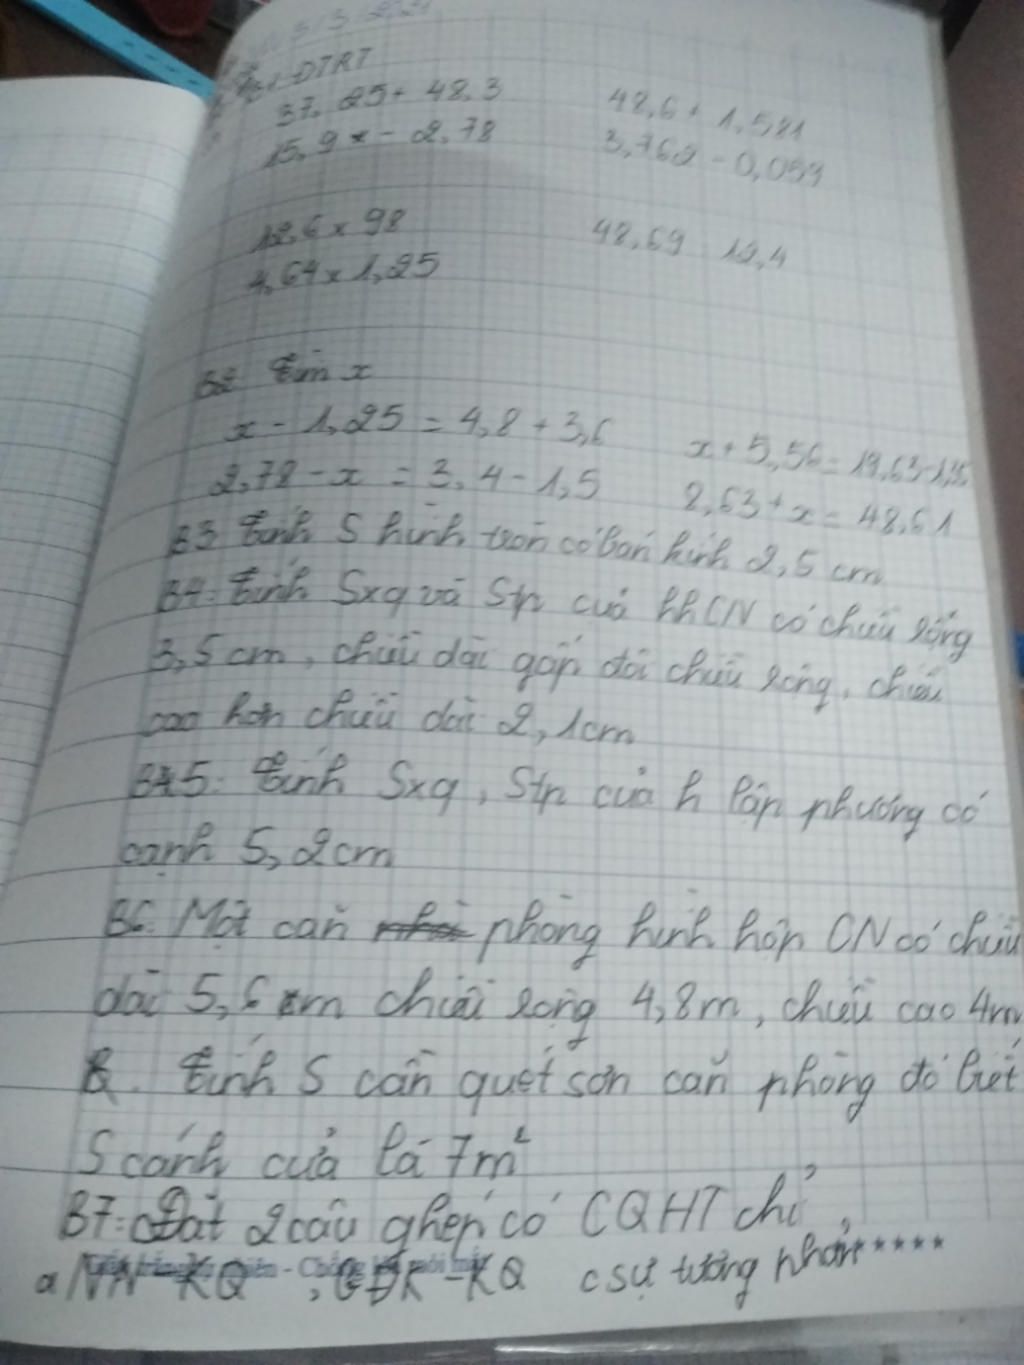 5/3/2021
B1 ĐTRT
37,25+ 48,3 48,6 + 1,581
15,9 - 2,78 3,762 - 0,059
12,6 x 98 48,69 : 12,4
4,64 x 1,25
B2 tìm x
x - 1,25 = 4,8 + 3,6 x + 5,56 = 19,63-1,35
2,78 - x = 3,4 - 1,5 2,63 + x = 48,61
B3 tính S hình tròn có bán kính 2,5 cm
B4: tính Sxq và Stp của hhCN có chiều rộng
3,5 cm, chiều dài gấp đôi chiều rộng, chiều
cao hơn chiều dài 2,1cm
B5: tính Sxq, Stp của h lập phương có
cạnh 5,2cm
B6: Một căn phòng hình hộp CN có chiều
dài 5,6 m chiều rộng 4,8m, chiều cao 4m
tính S cần quét sơn căn phòng đó biết
S cánh cửa là 7m²
B7: Đặt 2 câu ghép có CQHT chỉ,
a NN - KQ, GĐK - KQ c sự tương phản